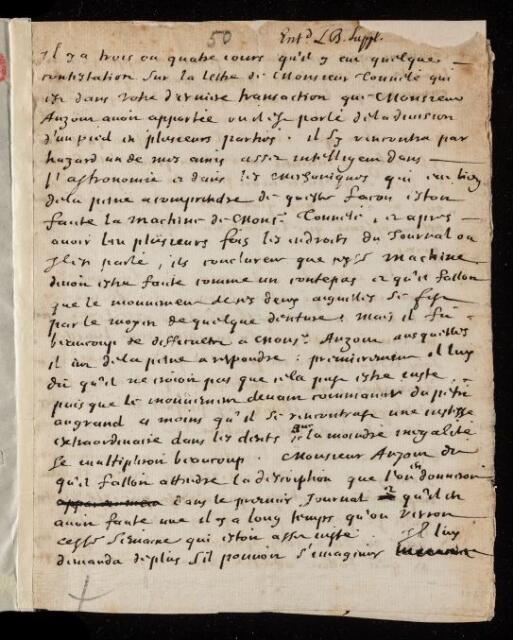 50 Entd L.B. Suppl.
Il y a trois ou quatre jours qu'il y eut quelque
contestation sur la lettre de Monsieur qui
est dans votre derniere transaction que Monsieur
Auzout avoit apportée ou il est parlé de la division
d'un pied en plusieurs parties. il s'y rencontra par
hazard un de mes amis assez intelligent dans
l'astronomie et dans les mechaniques qui eut bien
de la peine a comprendre de quelle facon estoit
faite la machine de Monsr. et apres
avoir leu plusieurs fois les endroits du Journal ou
il est parlé, ils conclurent que cette machine
devoit estre faite comme un contepas et qu'il falloit
que le mouvement de ces deux aiguilles se fist
par le moyen de quelque denture; mais il fit
beaucoup de difficultés a Monsr. Auzout ausquelles
il eut de la peine a respondre: premierement il luy
dit qu'il ne croioit pas que cela pust estre juste,
puisque le mouvement devant commancer du petit
au grand a moins qu'il se rencontrast une justesse
extraordinaire dans les dents la moindre inegalité
se multiplioit beaucoup. Monsieur Auzout dit
qu'il falloit attendre la description que l'on en donneroit
dans le premier Journal qu'il en
avoit faite une il y a long temps qu'on verroit
cette semaine qui estoit assez juste. Il luy
demanda de plus s'il pouvoit s'imaginer